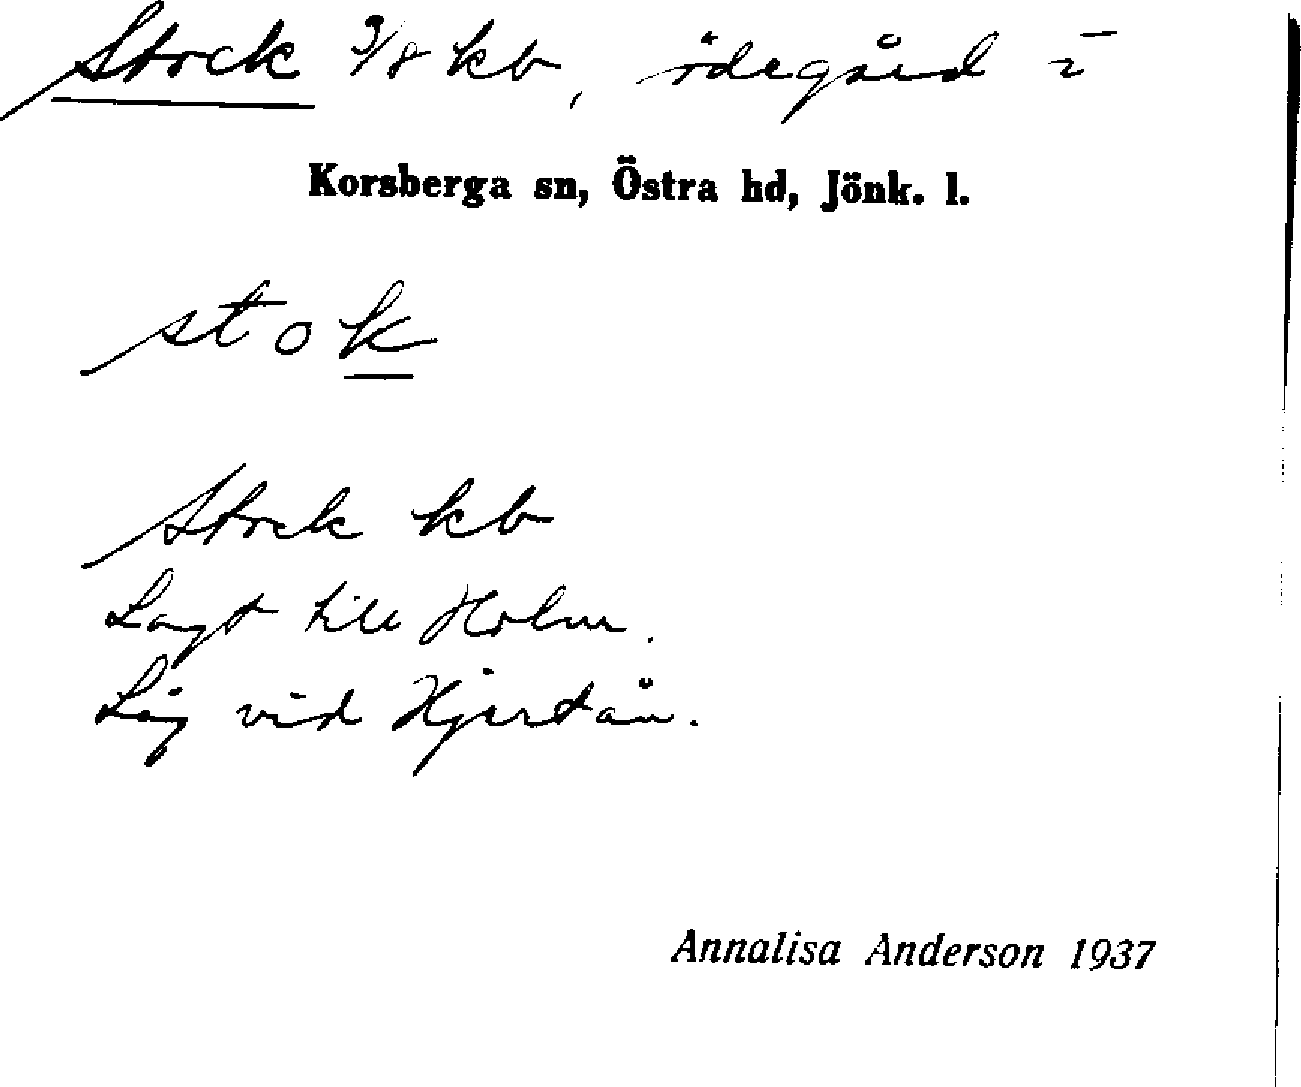 Stock 3/8 kb, ödegård i
Korsberga sn, Östra hd, Jönk. l.
stok
Stock kb
Lagt till Holm.
Låg vid Hjertån.
Annalisa Anderson 1937